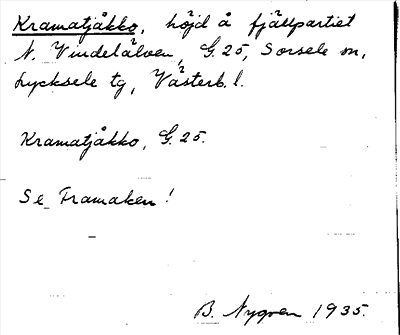 Kramatjåkko, höjd å fjällpartiet
N. Vindelälven, G.25, Sorsele sn,
Lycksele tg, Västerb. l.
Kramatjåkko, G.25.
Se Framaken!
B. Nygren 1935.